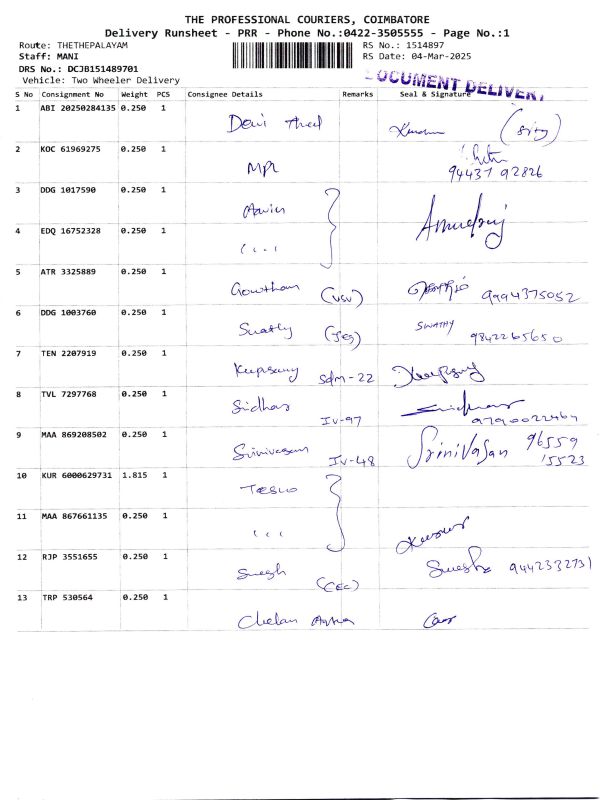 THE PROFESSIONAL COURIERS, COIMBATORE
Delivery Runsheet - PRR - Phone No.:0422-3505555 - Page No.:1
Route: THETHEPALAYAM RS No.: 1514897
Staff: MANI RS Date: 04-Mar-2025
DRS No.: DCJB151489701
Vehicle: Two Wheeler Delivery
DOCUMENT DELIVERY
S No Consignment No Weight PCS Consignee Details Remarks Seal & Signature
1 ABI 20250284135 0.250 1
Devi
2 KOC 61969275 0.250 1
MPL 94437 92826
3 DDG 1017590 0.250 1
4 EDQ 16752328 0.250 1
5 ATR 3325889 0.250 1
Gowtham 9994375052
6 DDG 1003760 0.250 1
Swathy SWATHY 9842265650
7 TEN 2207919 0.250 1
Sdm-22
8 TVL 7297768 0.250 1
Sridhar IV-97 9790022464
9 MAA 869208502 0.250 1
Srinivasan IV-48 Srinivasan 96559 15523
10 KUR 6000629731 1.815 1
11 MAA 867661135 0.250 1
12 RJP 3551655 0.250 1
(CEC) 9442332731
13 TRP 530564 0.250 1